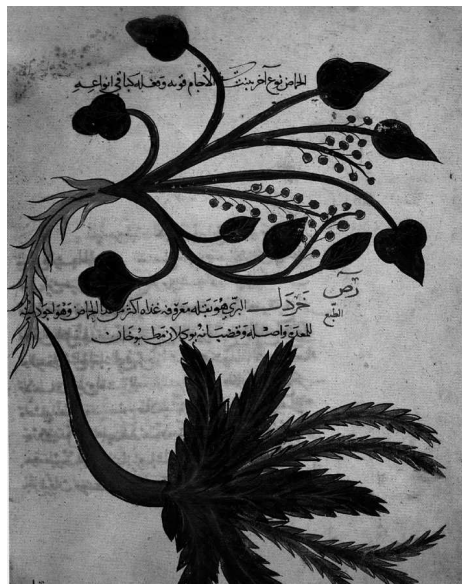 الحماض نوع آخر ينبت الآجام قوته وفعله كباقي انواعه
خردل البري هو بقله معروفه غذاه اكثر من الحماض وهو اجود
الطبع
للمعدة واصله وقضبانه يوكلان مطبوخان